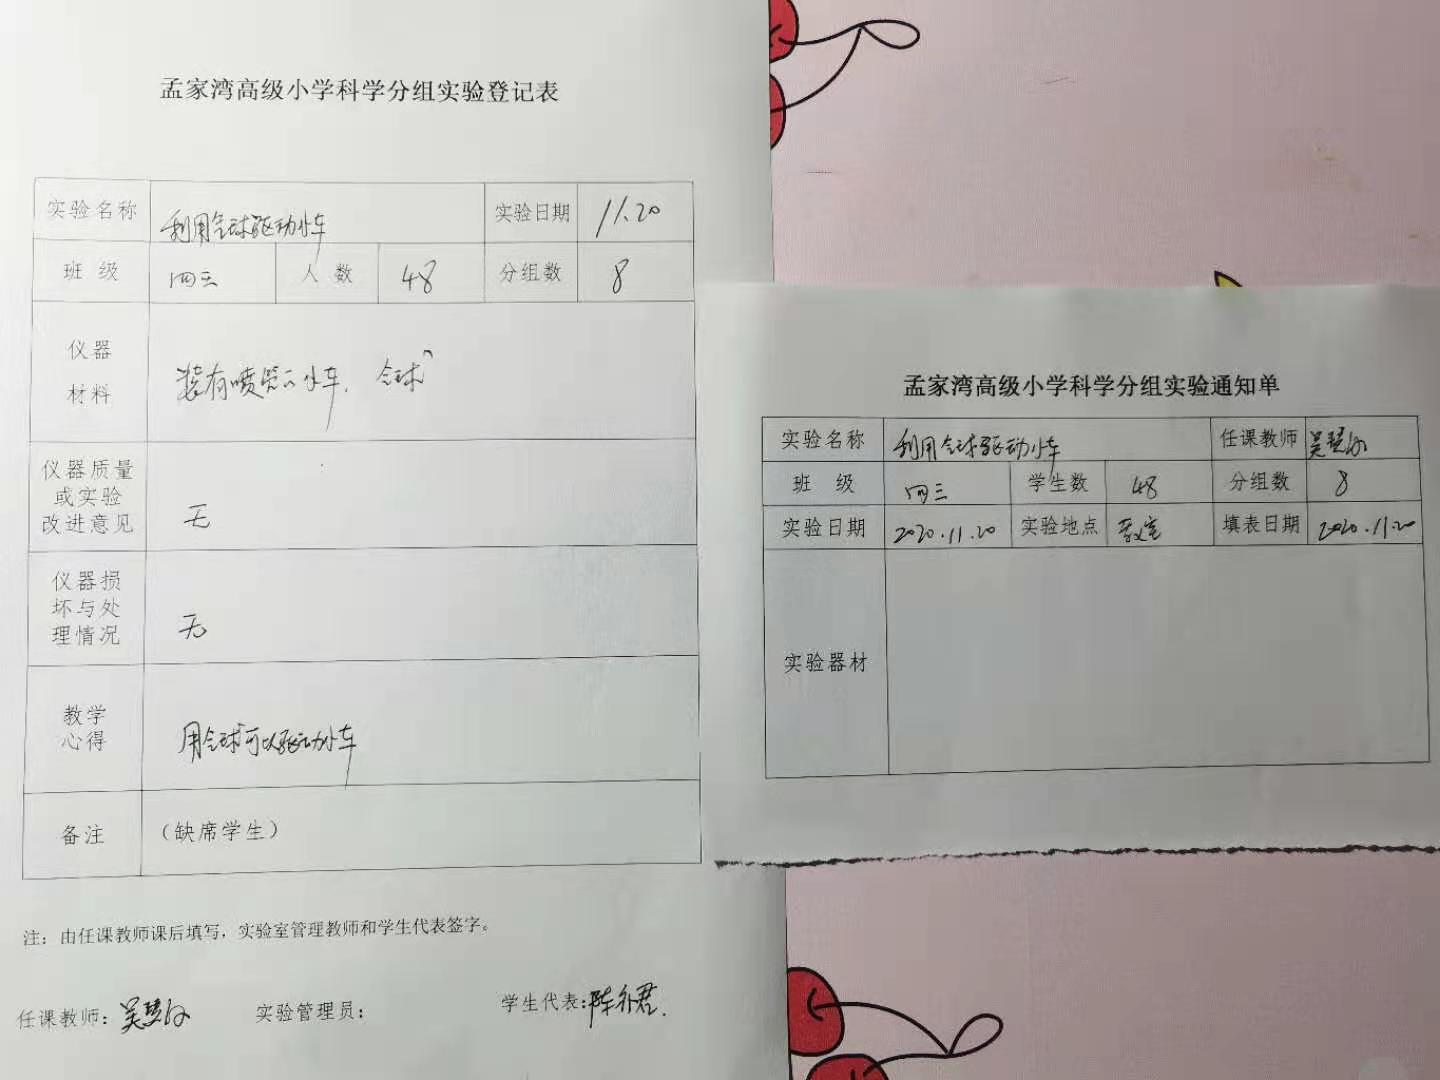 孟家湾高级小学科学分组实验登记表
实验名称 利用气球驱动小车 实验日期 11.20
班 级 四三 人 数 48 分组数 8
仪器
材料
装有喷管的小车、气球
仪器质量
或实验
改进意见
无
仪器损
坏与处
理情况
无
教学
心得
用气球可以驱动小车
备注 (缺席学生)
注：由任课教师课后填写，实验室管理教师和学生代表签字。
任课教师：吴 实验管理员： 学生代表：陈 君
孟家湾高级小学科学分组实验通知单
实验名称 利用气球驱动小车 任课教师 吴
班 级 四三 学生数 48 分组数 8
实验日期 2020.11.20 实验地点 教室 填表日期 2020.11.20
实验器材